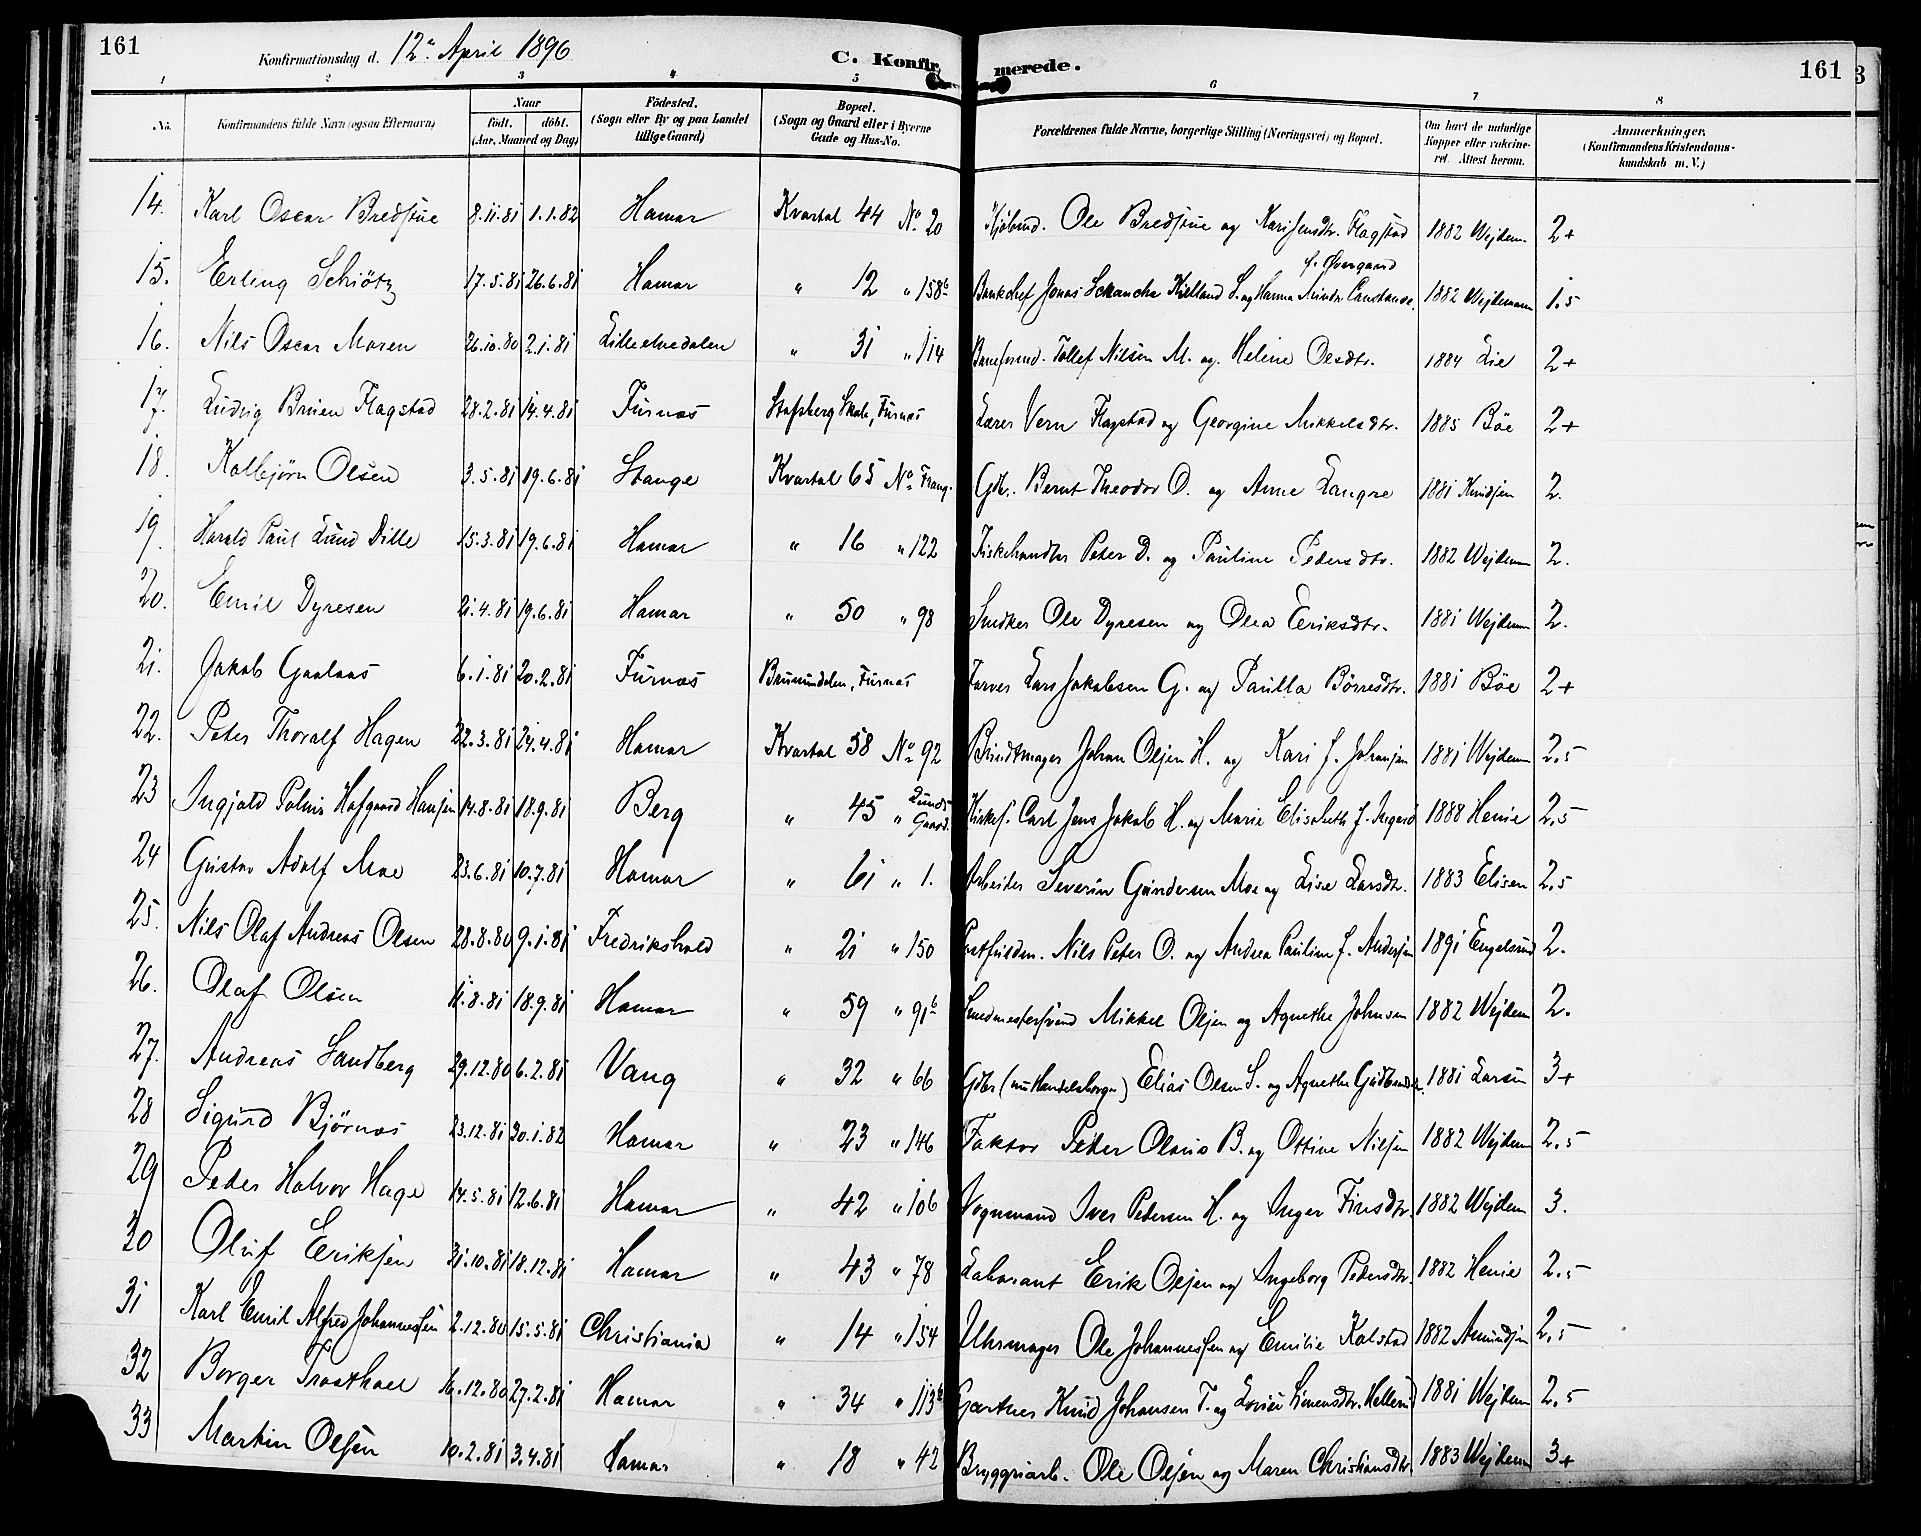 161
Konfirmationsdag d. 12te April 1896
C. Konfirmerede.
161
1 2 3 4 5 6 7 8
No.
Konfirmandens fulde Navn (ogsaa Efternavn)
Naar
født. døbt.
(Aar, Maaned og Dag)
Fødested.
(Sogn eller By og paa Landet
tillige Gaard)
Bopæl.
(Sogn og Gaard eller i Byerne
Gade og Hus-No.
Forældrenes fulde Navne, borgerlige Stilling (Næringsvei) og Bopæl.
Om havt de naturlige
Kopper eller vaccine-
ret. Attest herom.
Anmærkninger.
(Konfirmandens Kristendoms-
kundskab m. V.)
14. Karl Oscar Bredstue 8.11.81 1.1.82 Hamar Kvartal 44 No. 20 Ole Bredstue og Kari Jensdtr. Flagstad 1882 Wejdem 2+
f. Øvergaard
15. Erling Schiötz 17.5.81 26.6.81 Hamar " 12 " 158b Bankchef Jonas Schanche Kielland S. og Hanna Constance 1882 Wejdemann 1.5
16. Nils Oscar Moren 26.10.80 2.1.81 Lilleelvedalen " 31 " 114 Tollef Nilsen M. og Heline Olsdtr. 1884 Lie 2+
17. Ludvig Bruen Flagstad 28.2.81 14.4.81 Furnæs Stafsberg Skole, Furnæs Lærer Vern Flagstad og Georgine Mikkelsdtr. 1885 Böe 2+
18. Kolbjörn Olsen 3.5.81 19.6.81 Stange Kvartal 65 No. Frang. Gdbr. Bernt Theodor O. og Anne Langre 1881 Knudsen 2.
19. Harald Paul Lund Dille 15.3.81 19.6.81 Hamar " 16 " 122 Fiskehandler Peter D. og Pauline Pedersdtr. 1882 Wejdem 2.
20. Emil Dyresen 21.4.81 19.6.81 Hamar " 50 " 98 Snedker Ole Dyresen og Olea Eriksdtr. 1881 Wejdem 2.
21. Jakob Gaalaas 6.1.81 20.2.81 Furnæs Brumundalen, Furnæs Farver Lars Jakobsen G. og Paulla Börresdtr. 1881 Böe 2+
22. Peter Thoralf Hagen 22.3.81 24.4.81 Hamar Kvartal 58 No. 92 Buntmager Johan Olsen H. og Kari f. Johansen 1881 Wejdem 2.5
23 Ingjald Palms Hofgaard Hansen 14.8.81 18.9.81 Berg " 45 " Lunds Gaard. Carl Jens Jakob H. og Marie Elisabeth f. 1888 Henie 2.5
24 Gustav Adolf Moe 23.6.81 10.7.81 Hamar " 61 " 1. Arbeider Severin Gundersen Moe og Lise Larsdtr. 1883 Elisen 2.5
25. Nils Olaf Andreas Olsen 28.8.80 9.1.81 Fredrikshald " 21 " 150 Nils Peter O. og Andrea Pauline f. Andersen 1891 Engelsrud 2.
26. Olaf Olsen 11.8.81 18.9.81 Hamar " 59 " 91b Smedmestersvend Mikkel Olsen og Agnethe Johnsen 1882 Wejdem 2.
27. Andreas Sandberg 29.12.80 6.2.81 Vang " 32 " 66 Gdbr (nu Handelsborger) Elias Olsen S. og Agnethe Gudbrandsd. 1881 Larsen 3+
28 Sigurd Bjørnæs 23.12.81 30.1.82 Hamar " 23 " 146 Faktor Peder Olaus B. og Ottine Nilsen 1882 Wejdem 2.5
29 Peder Halvor Hage 14.5.81 12.6.81 Hamar " 42 " 106 Vognmand Iver Pedersen H. og Inger Finsdtr. 1882 Wejdem 3.
30 Oluf Eriksen 31.10.81 18.12.81 Hamar " 43 " 78 Laborant Erik Olsen og Ingeborg Pedersdtr. 1882 Henie 2.5
31 Karl Emil Alfred Johannessen 2.12.80 15.5.81 Christiania " 14 " 154 Uhrmager Ole Johannessen og Emilie Kolstad 1882 Amundsen 2.5
32 Borger Trosthoel 16.12.80 27.2.81 Hamar " 34 " 113b Gartner Knud Johansen T. og Lovise Simensdtr. Hellerud 1881 Wejdem 2.5
33 Martin Olsen 10.2.81 3.4.81 Hamar " 18 " 42 Bryggeriarb. Ole Olsen og Maren Christiansdtr 1883 Wejdem 3+